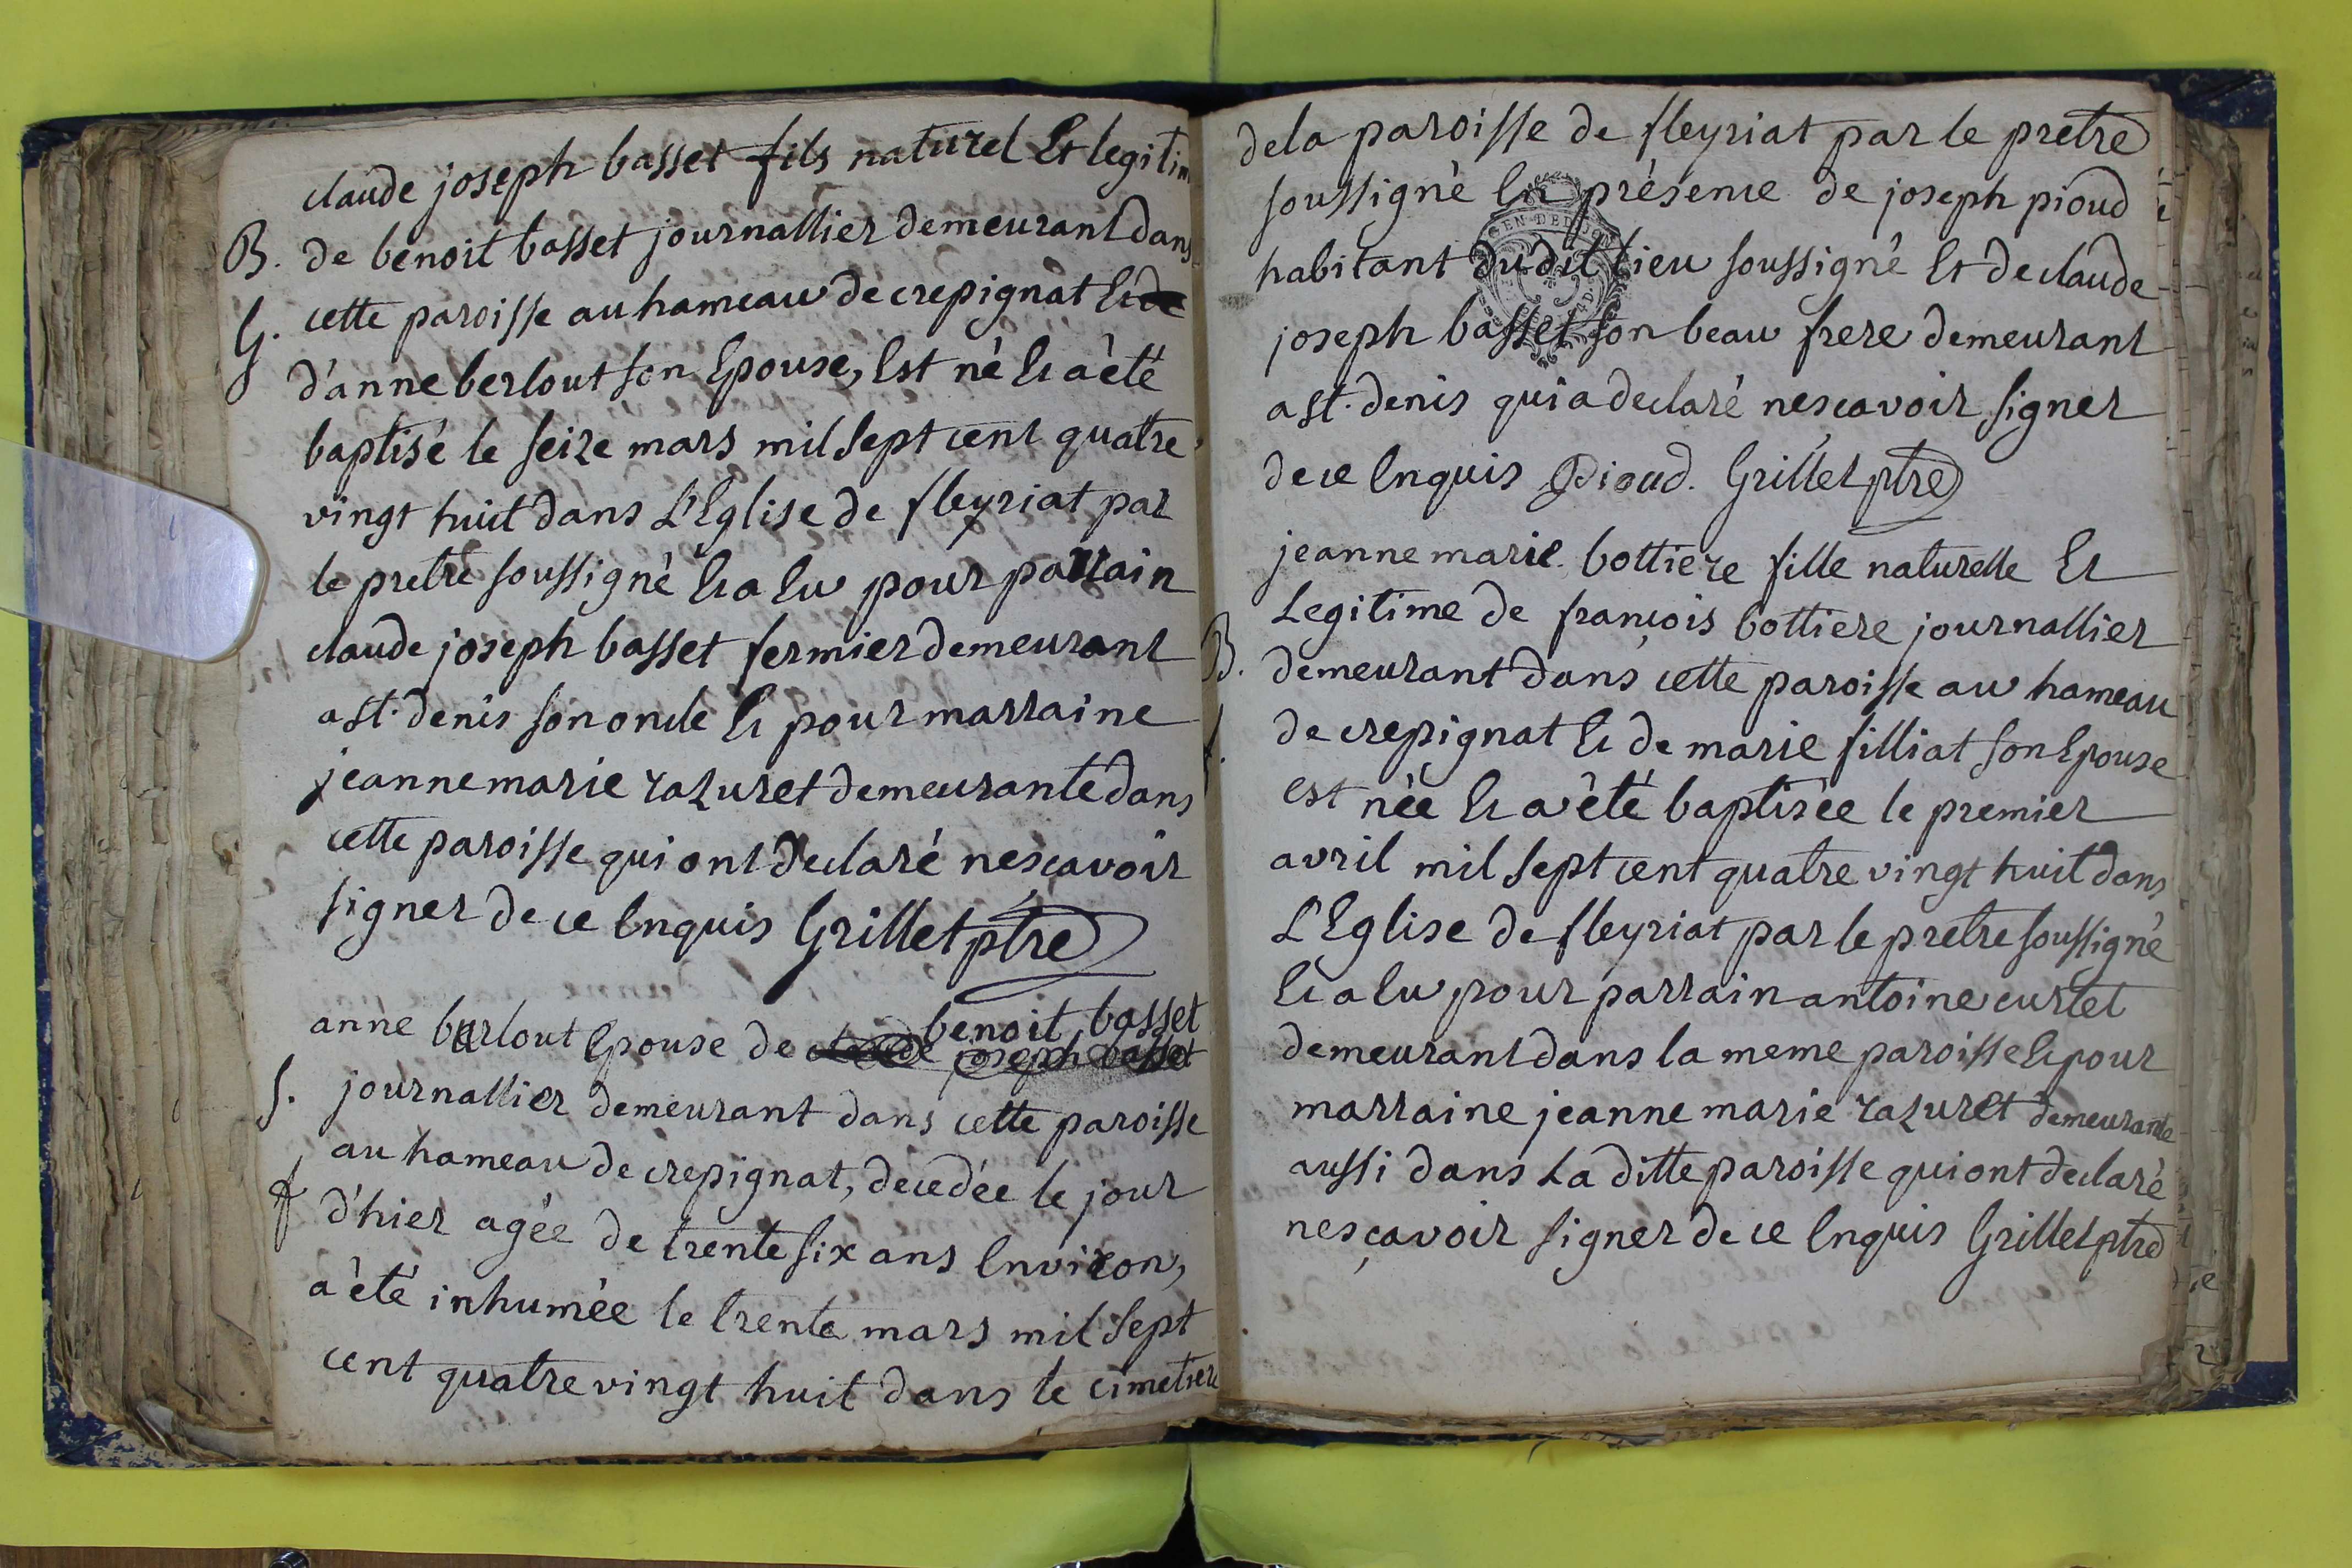 claude joseph basset fils naturel Et legitim
B. de benoit basset journallier demeurant dans
G. cette paroisse au hameau de crepignat Et de
d'anne berlout son Epouse, Est né Et a été
baptisé le seize mars mil sept cent quatre
vingt huit dans L'Eglise de fleyriat par
le pretre soussigné Et a Eu pour parrain
claude joseph basset fermier demeurant
a st. denis son oncle Et pour marraine
jeanne marie razuret demeurante dans
cette paroisse qui ont declaré nescavoir
signer de ce Enquis Grillet ptre
benoit basset
anne berlout Epouse de claude joseph basset
S. journallier demeurant dans cette paroisse
au hameau de crepignat, decedée le jour
f d'hier agée de trente six ans Environ,
a été inhumée le trente mars mil sept
cent quatre vingt huit dans le cimetiere
dela paroisse de fleyriat par le pretre
soussigné En présence de joseph pioud
habitant dudit lieu soussigné Et de claude
joseph basset son beau frere demeurant
a st. denis qui a declaré nescavoir signer
de ce Enquis Pioud. Grillet ptre
GEN DE DIJON
jeanne marie bottiere fille naturelle Et
Legitime de françois bottiere journallier
B. demeurant dans cette paroisse au hameau
de crepignat Et de marie filliat son Epouse
est née Et a été baptisée le premier
avril mil sept cent quatre vingt huit dans
L'Eglise de fleyriat par le pretre soussigné
Et a Eu pour parrain antoine curtet
demeurant dans la meme paroisse Et pour
marraine jeanne marie razuret demeurante
aussi dans La ditte paroisse qui ont declaré
nesçavoir signer de ce Enquis Grillet ptre